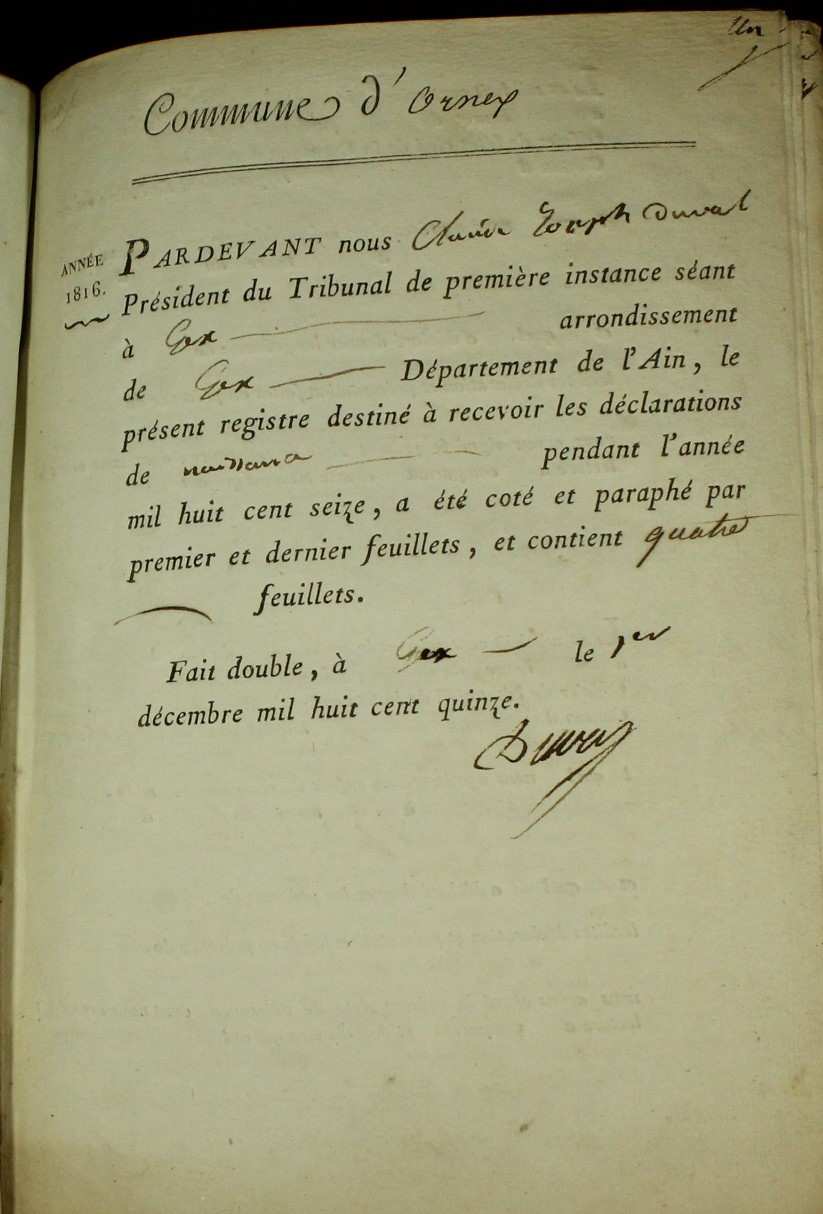 Un
Commune d'Ornex
ANNÉE
1816.
PARDEVANT nous Claude Joseph Duval
Président du Tribunal de première instance séant
à Gex arrondissement
de Gex Département de l'Ain, le
présent registre destiné à recevoir les déclarations
de naissance pendant l'année
mil huit cent seize, a été coté et paraphé par
premier et dernier feuillets, et contient quatre
feuillets.
Fait double, à Gex le 1er
décembre mil huit cent quinze.
Duval